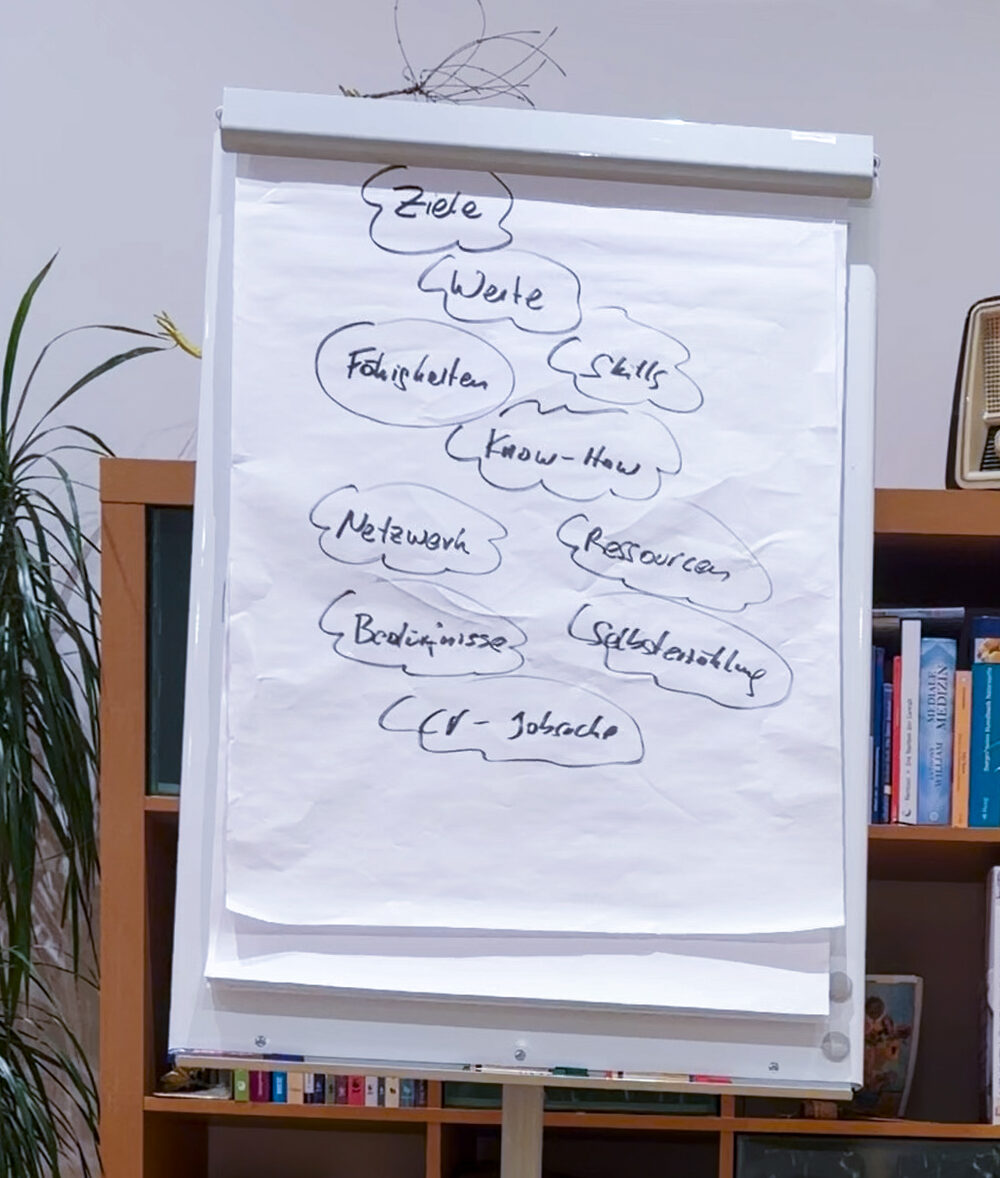 Ziele
Werte
Fähigkeiten
Skills
Know-How
Netzwerk
Ressourcen
Bedürfnisse
Selbsterzählung
CV - Jobsuche
MEDIALE
MEDIZIN
WILLIAM